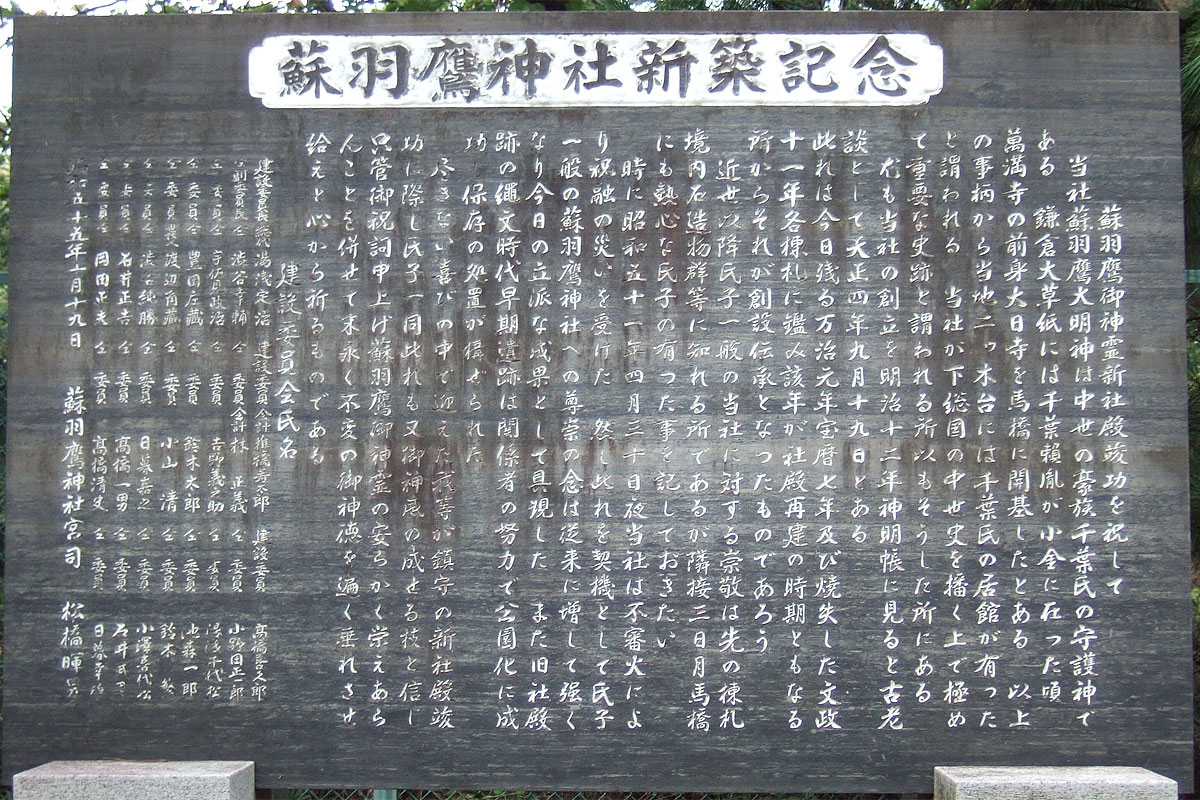 蘇羽鷹神社新築記念
蘇羽鷹御神霊新社殿竣功を祝して
当社蘇羽鷹大明神は中世の豪族千葉氏の守護神で
ある 鎌倉大草紙には千葉頼胤が小金に在った頃
萬満寺の前身大日寺を馬橋に開基したとある 以上
の事柄から当地二ッ木台には千葉氏の居館が有った
と謂われる 当社が下総国の中世史を播く上で極め
て重要な史跡と謂われる所以もそうした所にある
尤も当社の創立を明治十二年神明帳に見ると古老
談として天正四年九月十九日とある
此れは今日残る万治元年宝暦七年及び焼失した文政
十一年各棟札に鑑み該年が社殿再建の時期ともなる
所からそれが創設伝承となったものであろう
近世以降民子一般の当社に対する崇敬は先の棟札
境内石造物群等に知れる所であるが隣接三日月馬橋
にも熱心な氏子の有った事を記しておきたい
時に昭和五十一年四月三十日夜当社は不審火によ
り祝融の災いを受けた 然し此れを契機として氏子
一般の蘇羽鷹神社への尊崇の念は従来に増して强く
なり今日の立派な成果として具現した また旧社殿
跡の縄文時代早期遺跡は関係者の努力で公園化に成
功 保存の処置が構ぜられた
尽きない喜びの中で迎えた我等が鎮守の新社殿竣
功に際し氏子一同此れも又御神威の成せる技と信し
只管御祝詞申上げ蘇羽鷹御神霊の安らかく栄えあら
んことを併せて末永く不変の御神徳を遍く垂れさせ
給えと心から祈るものである
建設委員会氏名
建設委員長 湯浅定治 建設委員会計 椎橋秀次郎 建設委員 高橋喜久郎
仝副委員長 渋谷幸輔 仝 委員会計 林 正義 仝 委員 小野田正一郎
仝 委員 宇佐見政治 仝 委員 吉野義之助 仝 委員 湯浅千代松
仝 委員 豊田庄蔵 仝 委員 鈴木太郎 仝 委員 一郎
仝 委員 渡辺角蔵 仝 委員 小山 清 仝 委員 鈴木
仝 委員 渋谷純勝 仝 委員 日暮嘉之 仝 委員 小澤喜代松
仝 委員 石井正吉 仝 委員 高橋一男 仝 委員 石井
仝 委員 岡田正夫 仝 委員 高橋清丈 仝 委員 日暮幸治
五十五年十月十九日 蘇羽鷹神社宮司 松橋暉男